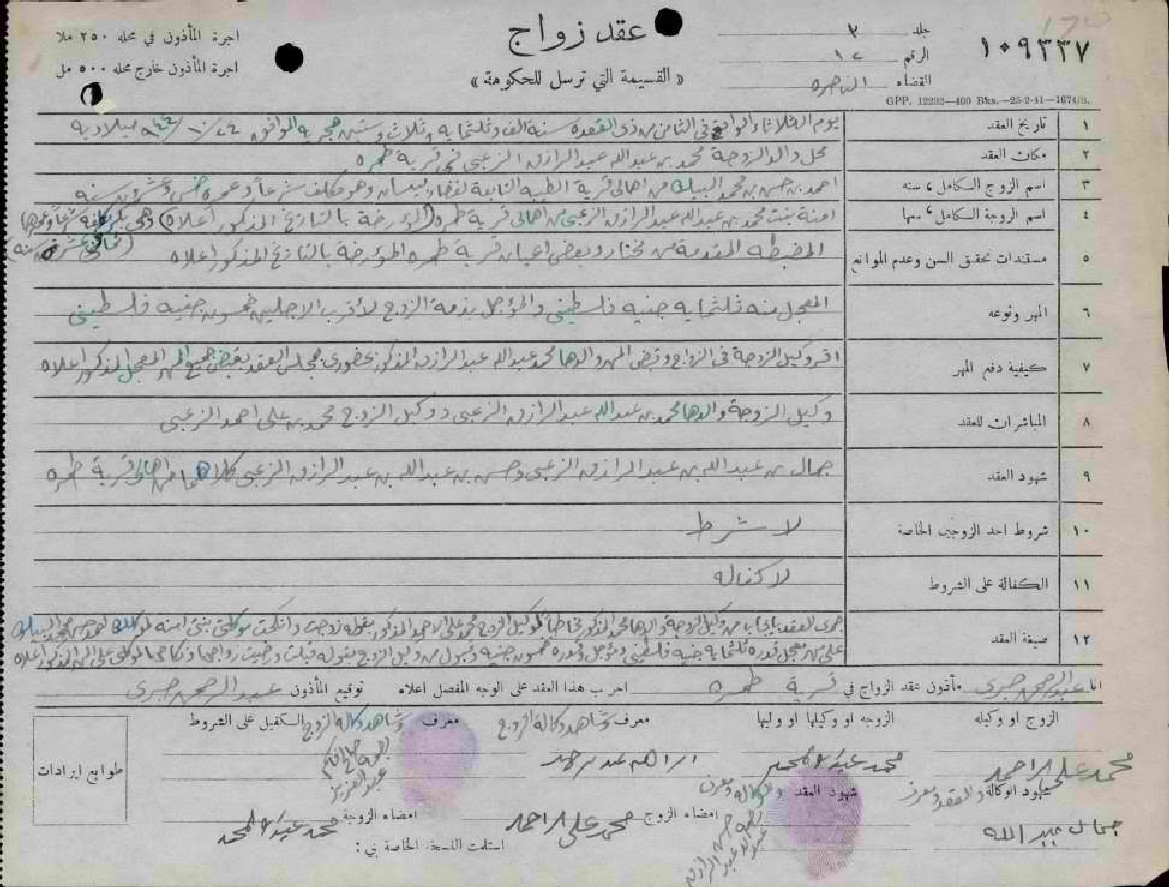 اجرة المأذون في محله ٢٥٠ ملا
اجرة المأذون خارج محله ٥٠٠ مل
عقد زواج
« القسيمة التي ترسل للحكومة »
جلد ٣
الرقم ١٢
القضاء الناصره
١٠٩٣٣٧
GPP. 12293—400 Bks.—25-2-41—1674/S.
١ تاريخ العقد يوم الثلاثاء الواقع في الثامن من ذي القعده سنة الف وثلثمايه وثلاث وستين هجريه الموافق ميلاديه
٢ مكان العقد محل والد الزوجة محمد بن عبدالله عبد الرازق الزعبي في قرية طمره
٣ اسم الزوج الكامل ، سنه احمد بن حسن بن محمد من اهالي قرية الطيبه التابعة لقضاء بيسان وهو مكلف شرعاً وعمره خمس وعشرون سنه
٤ اسم الزوجة الكامل ، سنها امنة بنت محمد بن عبدالله عبد الرازق الزعبي من اهالي قرية طمره (المؤرخة بالتاريخ المذكور اعلاه) وهي بكر
٥ مستندات تحقق السن وعدم الموانع المضبطه المقدمة من مختار وبعض اعيان قرية طمره المؤرخة بالتاريخ المذكور اعلاه
٦ المهر ونوعه المعجل منه ثلثمايه جنيه فلسطيني والمؤجل بذمة الزوج لأقرب الاجلين خمسون جنيه فلسطيني
٧ كيفية دفع المهر اقر وكيل الزوجة في الزواج وقبض المهر والدها محمد عبدالله عبد الرازق المذكور بحضوري مجلس العقد بقبض جميع المهر المعجل المذكور اعلاه
٨ المباشرات للعقد وكيل الزوجة والدها محمد بن عبدالله عبد الرازق الزعبي ووكيل الزوج محمد بن علي احمد الزعبي
٩ شهود العقد جمال بن عبدالله بن عبد الرازق الزعبي وحسن بن عبدالله بن عبد الرازق الزعبي كلاهما من اهالي قرية طمره
١٠ شروط احد الزوجين الخاصة لا شرط
١١ الكفالة على الشروط لا كفاله
١٢ صيغة العقد جرى العقد بايجاب من وكيل الزوجة والدها محمد المذكور مخاطباً لوكيل الزوج محمد علي الاحمد المذكور بقوله زوجت وانكحت موكلتي بنتي امنه لموكلك
على مهر معجل قدره ثلثمايه جنيه فلسطيني ومؤجل قدره خمسون جنيه وقبول من وكيل الزوج بقوله قبلت ورضيت زواجها ونكاحها لموكلي على المهر المذكور اعلاه
انا عبد الرحمن صبري مأذون عقد الزواج في قرية طمره اجريت هذا العقد على الوجه المفصل اعلاه توقيع المأذون عبد الرحمن صبري
الزوج او وكيله الزوجه او وكيلها او وليها معرف وشاهد وكالة الزوج معرف وشاهد وكالة الزوج الكفيل على الشروط
محمد علي الاحمد محمد عبدالله
شهود الوكالة والعقد ومعرف شهود العقد والوكاله ومعرف
جمال عبدالله
امضاء الزوج محمد علي الاحمد امضاء الزوجة محمد عبدالله
استلمت النسخة الخاصة بي :
طوابع ايرادات